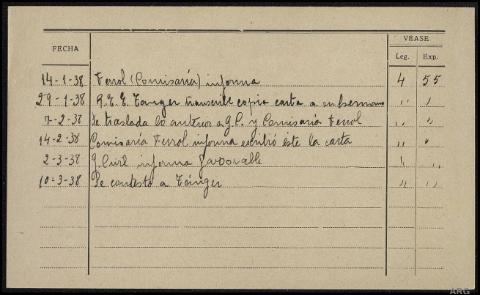 VEASE
FECHA
Leg. Exp.
14-1-38 Ferrol (Comisaría) informa 4 55
29-1-38 G.E.E. Tánger transcribe copia carta a un hermano " "
7-2-38 Se traslada lo anterior a G.C. y Comisaría Ferrol " "
14-2-38 Comisaría Ferrol informa escribió éste la carta " "
2-3-38 G. Civil informa favorable " "
10-3-38 Se contestó a Tánger " "
ARG